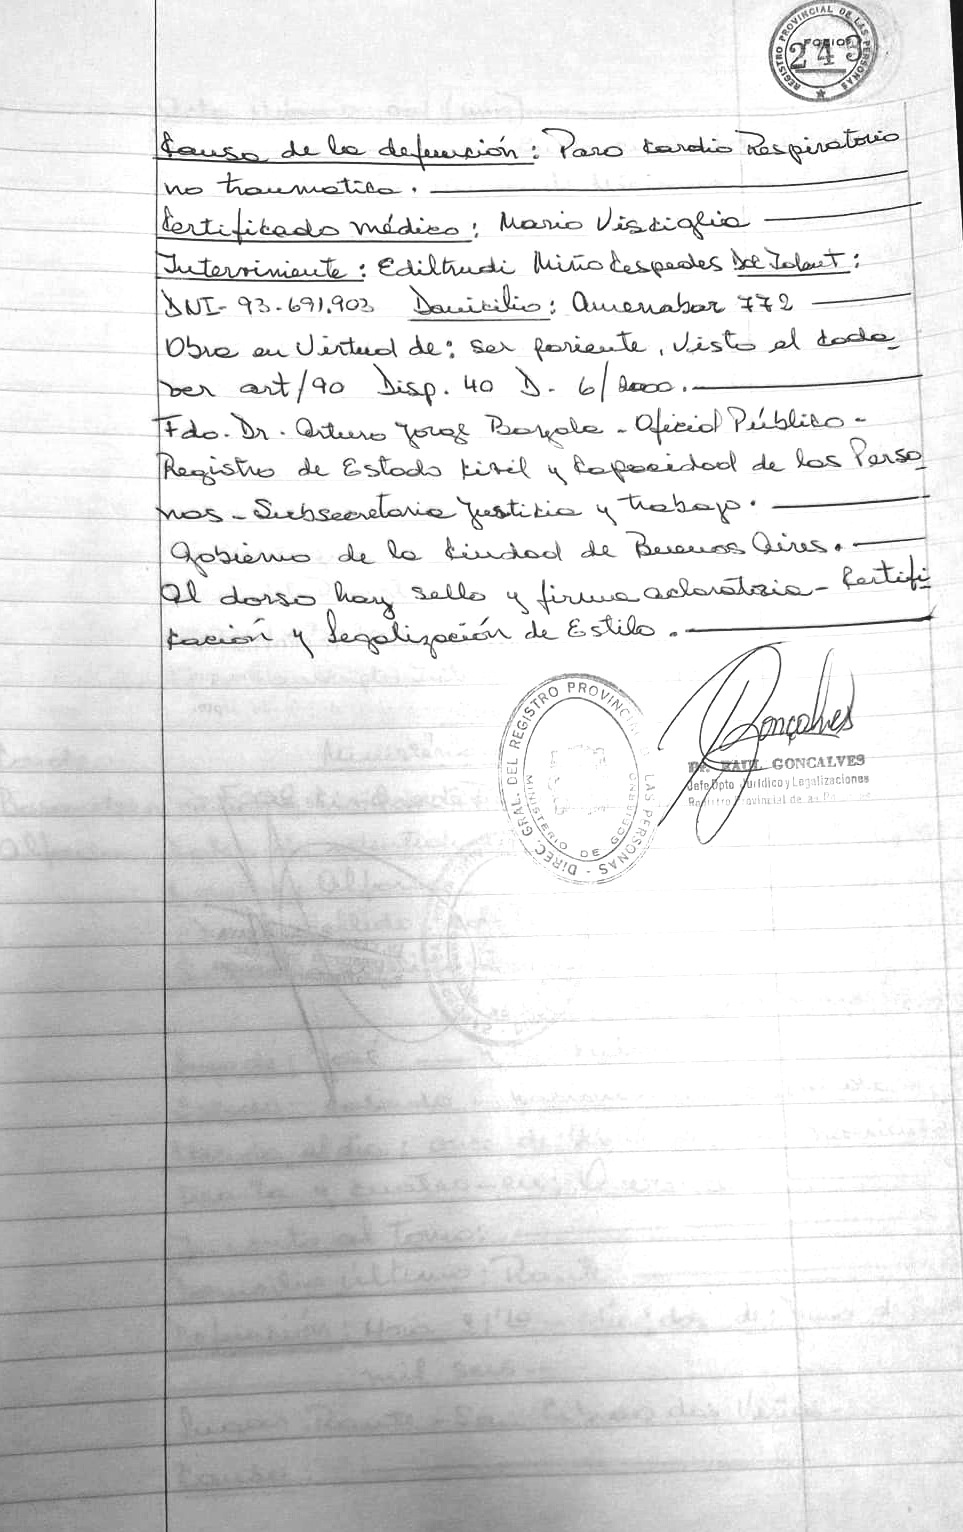 REGISTRO PROVINCIAL DE LAS PERSONAS
FOLIO
243
Causa de la defunción: Paro Cardio Respiratorio
no traumatico.
Certificado médico: Mario Visciglia
Interviniente: Ediltrudi Miño Cespedes Doc Ident:
DNI- 93.691.903 Domicilio: Amenabar 772
Obra en Virtud de: ser pariente, Visto el Cada-
ver art/90 Disp. 40 D. 6/2000.
Fdo. Dr. Arturo Jorge - Oficial Público -
Registro de Estado Civil y Capacidad de las Perso
nas - Subsecretaria Justicia y trabajo.
Gobierno de la Ciudad de Buenos Aires.
Al dorso hay sello y firma aclaratoria - Certifi-
cación y Legalización de Estilo.
DIREC. GRAL. DEL REGISTRO PROVINCIAL DE LAS PERSONAS
MINISTERIO DE GOBIERNO
Gonçalves
Dr. RAUL GONCALVES
Jefe Dpto Jurídico y Legalizaciones
Registro Provincial de las